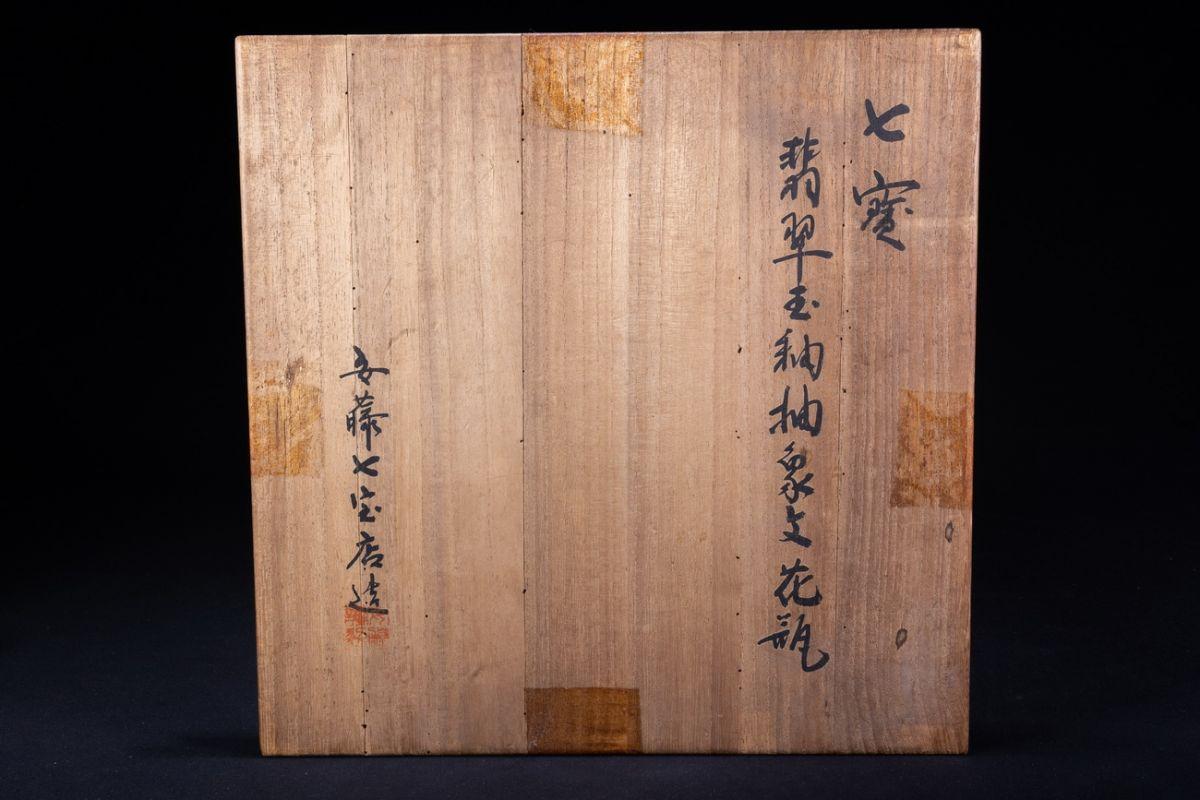 七寶
翡翠玉釉抽象文花瓶
安藤七宝店造